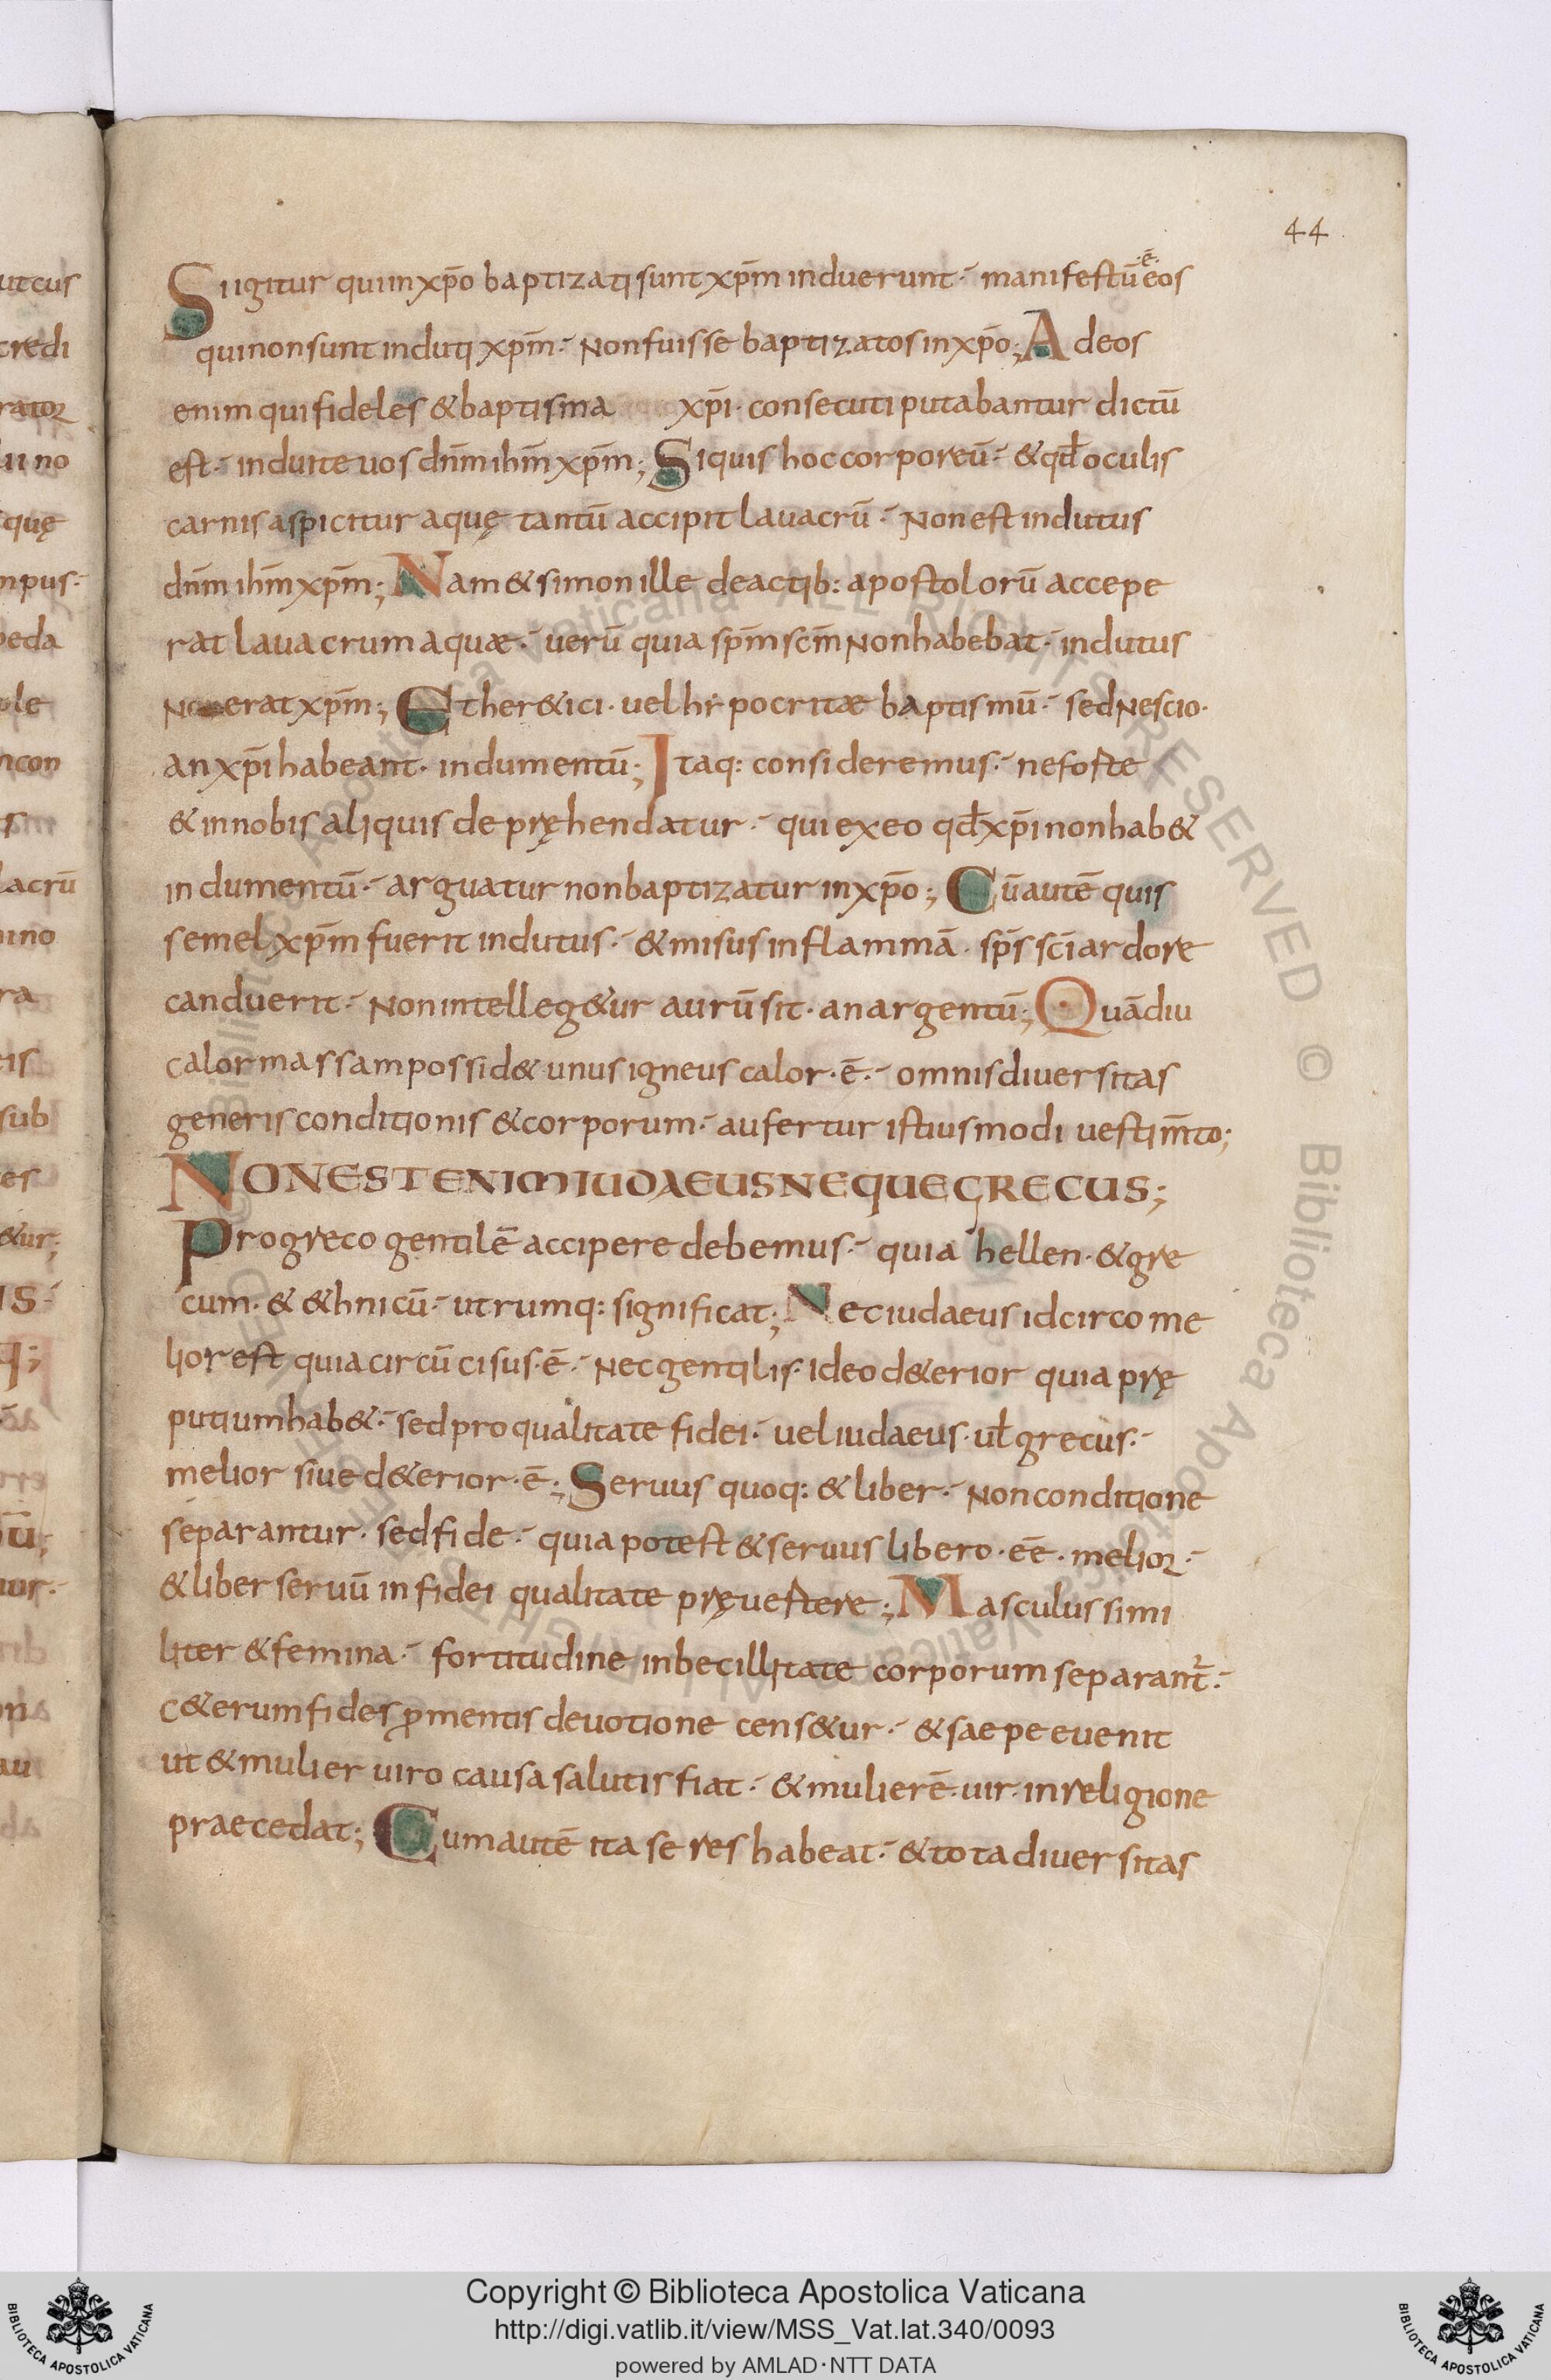 44
Siigitur quiinxp̄o baptizati sunt xp̄m induerunt· manifestū ·é· eos
quinonsunt induti xp̄m· Nonfuisse baptizatos inxp̄o; Adeos
enim quifideles &baptisma xp̄i· consecuti putabantur dictū
est· induite uos dn̄m ihm̄ xp̄m; Siquis hoc corporeū· &qd̄ oculis
carnis aspicitur aquę tantū accipit lauacrū· Nonest indutus
dn̄m ihm̄ xp̄m; Nam &simon ille deactib: apostolorū accepe
rat lauacrum aquae· uerū quia sp̄m scm̄ Nonhabebat· indutus
Nonerat xp̄m; Ether&ici· uel hipocritae baptismū· sed Nescio·
an xp̄i habeant· indumentū; Itaq: consideremus· nefofte
& innobis aliquis depręhendatur· qui exeo qd̄ xp̄i nonhab&
indumentū· arguatur nonbaptizatur inxp̄o; Cū autē quis
semel xp̄m fuerit indutus· &misus inflammā· sp̄s sc̄i ardore
canduerit· Non intelleg&ur aurū sit· an argentū; Quādiu
calor massam possid& unus igneus calor·ē· omnis diuersitas
generis conditionis &corporum· aufertur istius modi uestim̄to;
NONEST ENIM IUDAEUS NEQUE GRECUS;
Progreco gentilē accipere debemus· quia hellen· &gre
cum· & &hnicū· utrumq: significat; Nec iudaeus idcirco me
lior est quia circūcisus·ē· Nec gentilis· ideo d&erior quia prę
putium hab&· sed pro qualitate fidei· uel iudaeus· ul̄ grecus·
melior siue d&erior·ē·; Seruus quoq: & liber· Non conditione
separantur· sed fide· quia potest & seruus libero·eē· melior·
& liber seruū in fidei qualitate pręuestere; Masculus simi
liter & femina· fortitudine inbecillitate corporum separant̄·
C&erum fides ꝓ mentis deuotione cens&ur· & saepe euenit
ut & mulier uiro causa salutis fiat· & mulierē· uir· in religione
praecedat; Cum autē ita se res habeat· & tota diuersitas
Copyright © Biblioteca Apostolica Vaticana
http://digi.vatlib.it/view/MSS_Vat.lat.340/0093
powered by AMLAD·NTT DATA
BIBLIOTECA APOSTOLICA VATICANA
BIBLIOTECA APOSTOLICA VATICANA